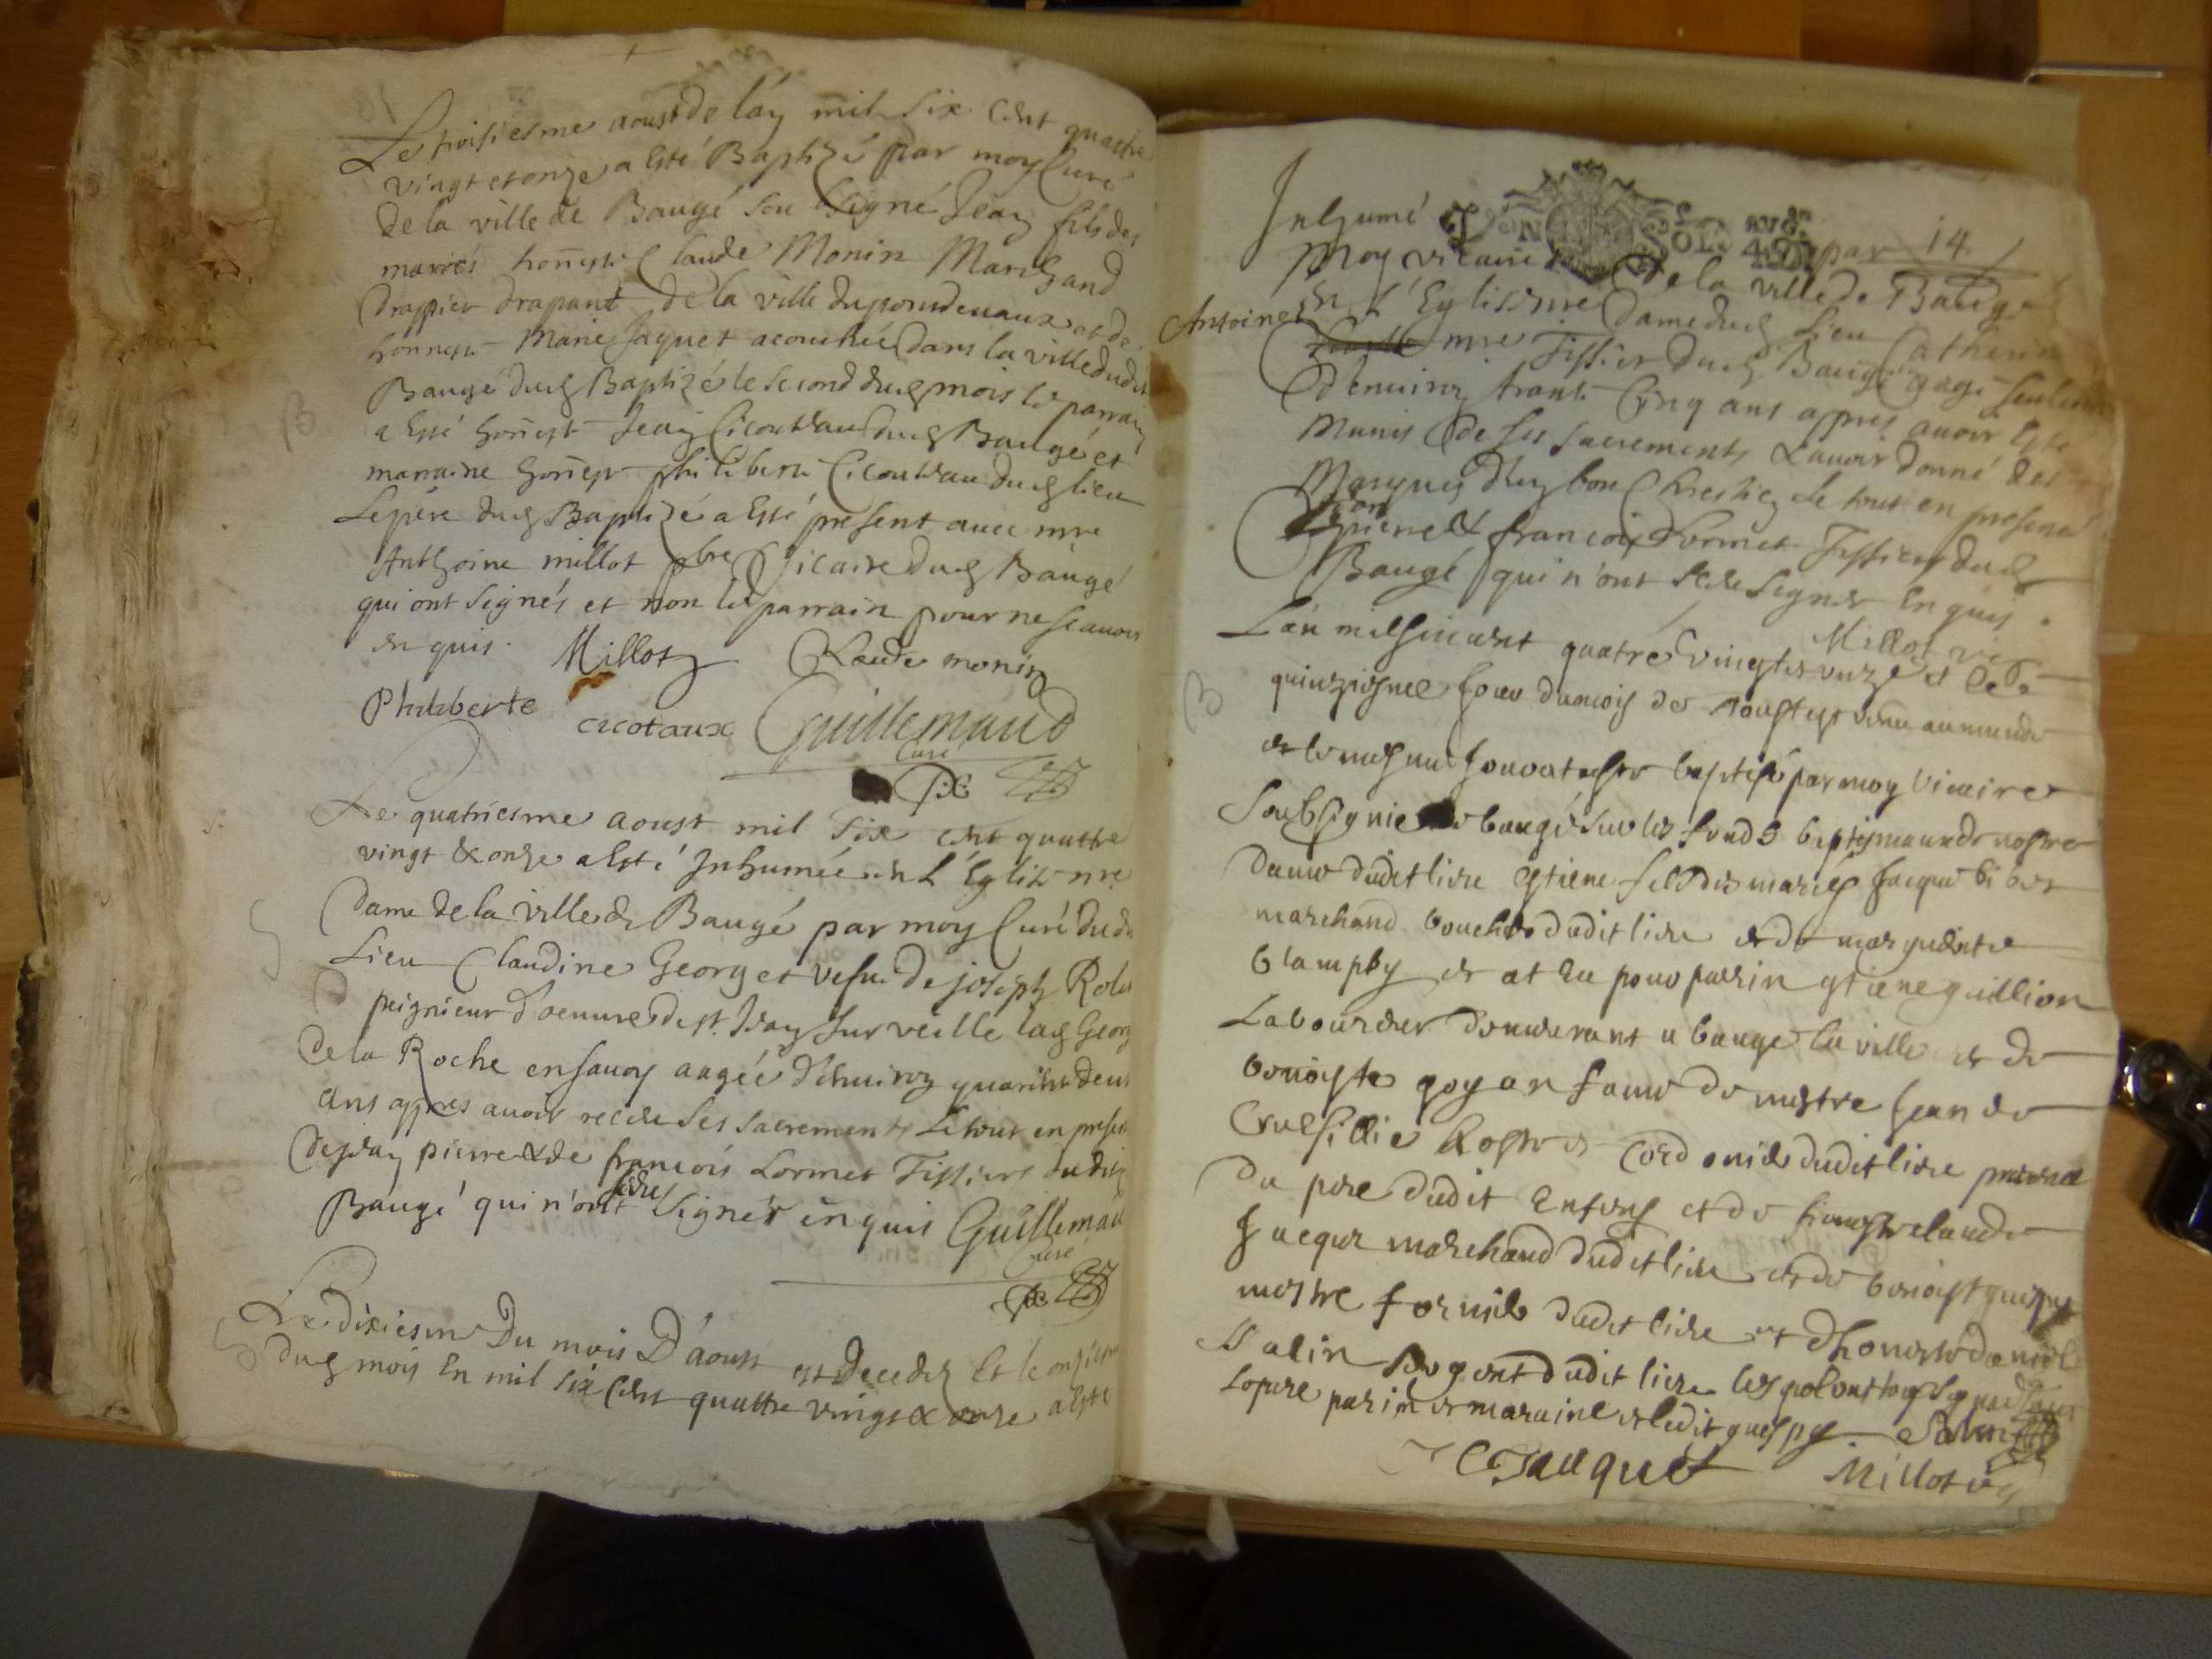 Le troisiesme aoust de l'an mil six cent quattre
vingt et onze a esté Baptizé par moy Curé
de la ville de Baugé sou signé Jean fils des
mariés honneste Claude Monin Marchand
drappier drapant de la ville du pondevaux et de
honneste Marie Jaquet acouchée dans la ville dudit
Baugé dud Baptizé le second dud mois le parrain
a esté honest Jean Cicouteau dud Baugé et
marraine honest philiberte Cicouteau dud lieu
Le pere dud Baptizé a esté present avec mre
Anthoine millot pbre Vicaire dud Baugé
qui ont signés et non le parrain pour ne scavoir
enquis. Millot Claude monin
Philiberte cicotaux Guillemaud
Curé
Le quatriesme aoust mil six cent quattre
vingt & onze a esté Inhumée en L'Eglise nre
Dame de la ville de Baugé par moy Curé dudi
Lieu Claudine Georget vefve de joseph Rolet
peignieur d'oeuvre de st. surveille lad Georg
de la Roche en savoy aagée d'environ quarante deux
ans appres avoir receue ses sacrements Le tout en presen
de pierre & de francois Lormet Tissiers dudit
Baugé qui n'ont sceu signér enquis Guillemaud
Curé
Le dixiesme Du mois D'aoust est Decedez Et le onziesme
dud mois En mil six cent quattre vingt & onze a esté
Inhumé par 14.
GEN SOL
moy vicaire de la ville de Baugé
Antoine
en L'Eglise nre dame dud Lieu Catherin
mre Tissier dud Baugé aagé seulem
D'environ trante Cinq ans appres avoir Esté
Munis de ses sacrements & avoir donné des
Marques d'un bon Chrestien Le tout en presence
pierre & francois Lormet Tissiers dud
Baugé qui n'ont sceu signer Enquis.
Millot vic
L'an mil six cent quatre vingts et unze et le
quinziesme jour du mois de aoust est venu au monde
et le mesme jour at esté baptisé par moy Vicaire
Soubsignie de baugé sur les fonds baptismaux de nostre
dame dudit lieu estiene fils des mariés Jacque bibet
marchand boucher dudit lieu et de marguerite
blamply et at eu pour parrin estiene guillion
Laboureur demeurant a bauge la ville et de
benoiste goyon fame de mestre Jean de
Crussillie Rostre cordonie dudit lieu presence
du pere dudit Enfent et de honeste claude
Jacque marchand dudit lieu et de benoist guespy
mestre dudit lieu et d'honeste daniel
Salin sergent dudit lieu
Le pere parin et maraine et ledit guespy. Salin
C Jacquet Millot vic